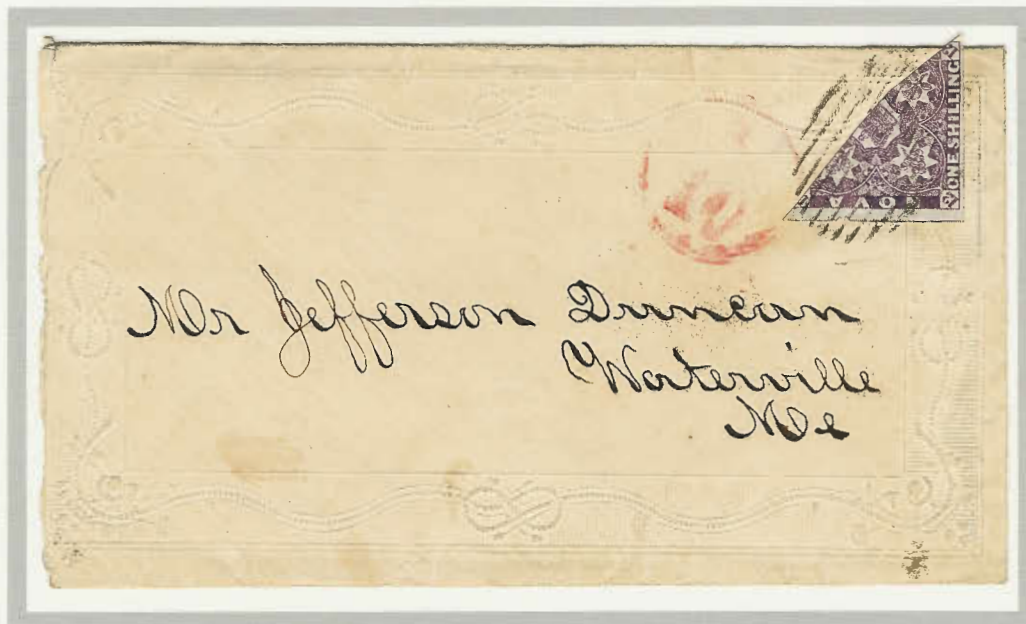 ONE SHILLING
OVA
10
Mr Jefferson Duncan
Waterville
Me